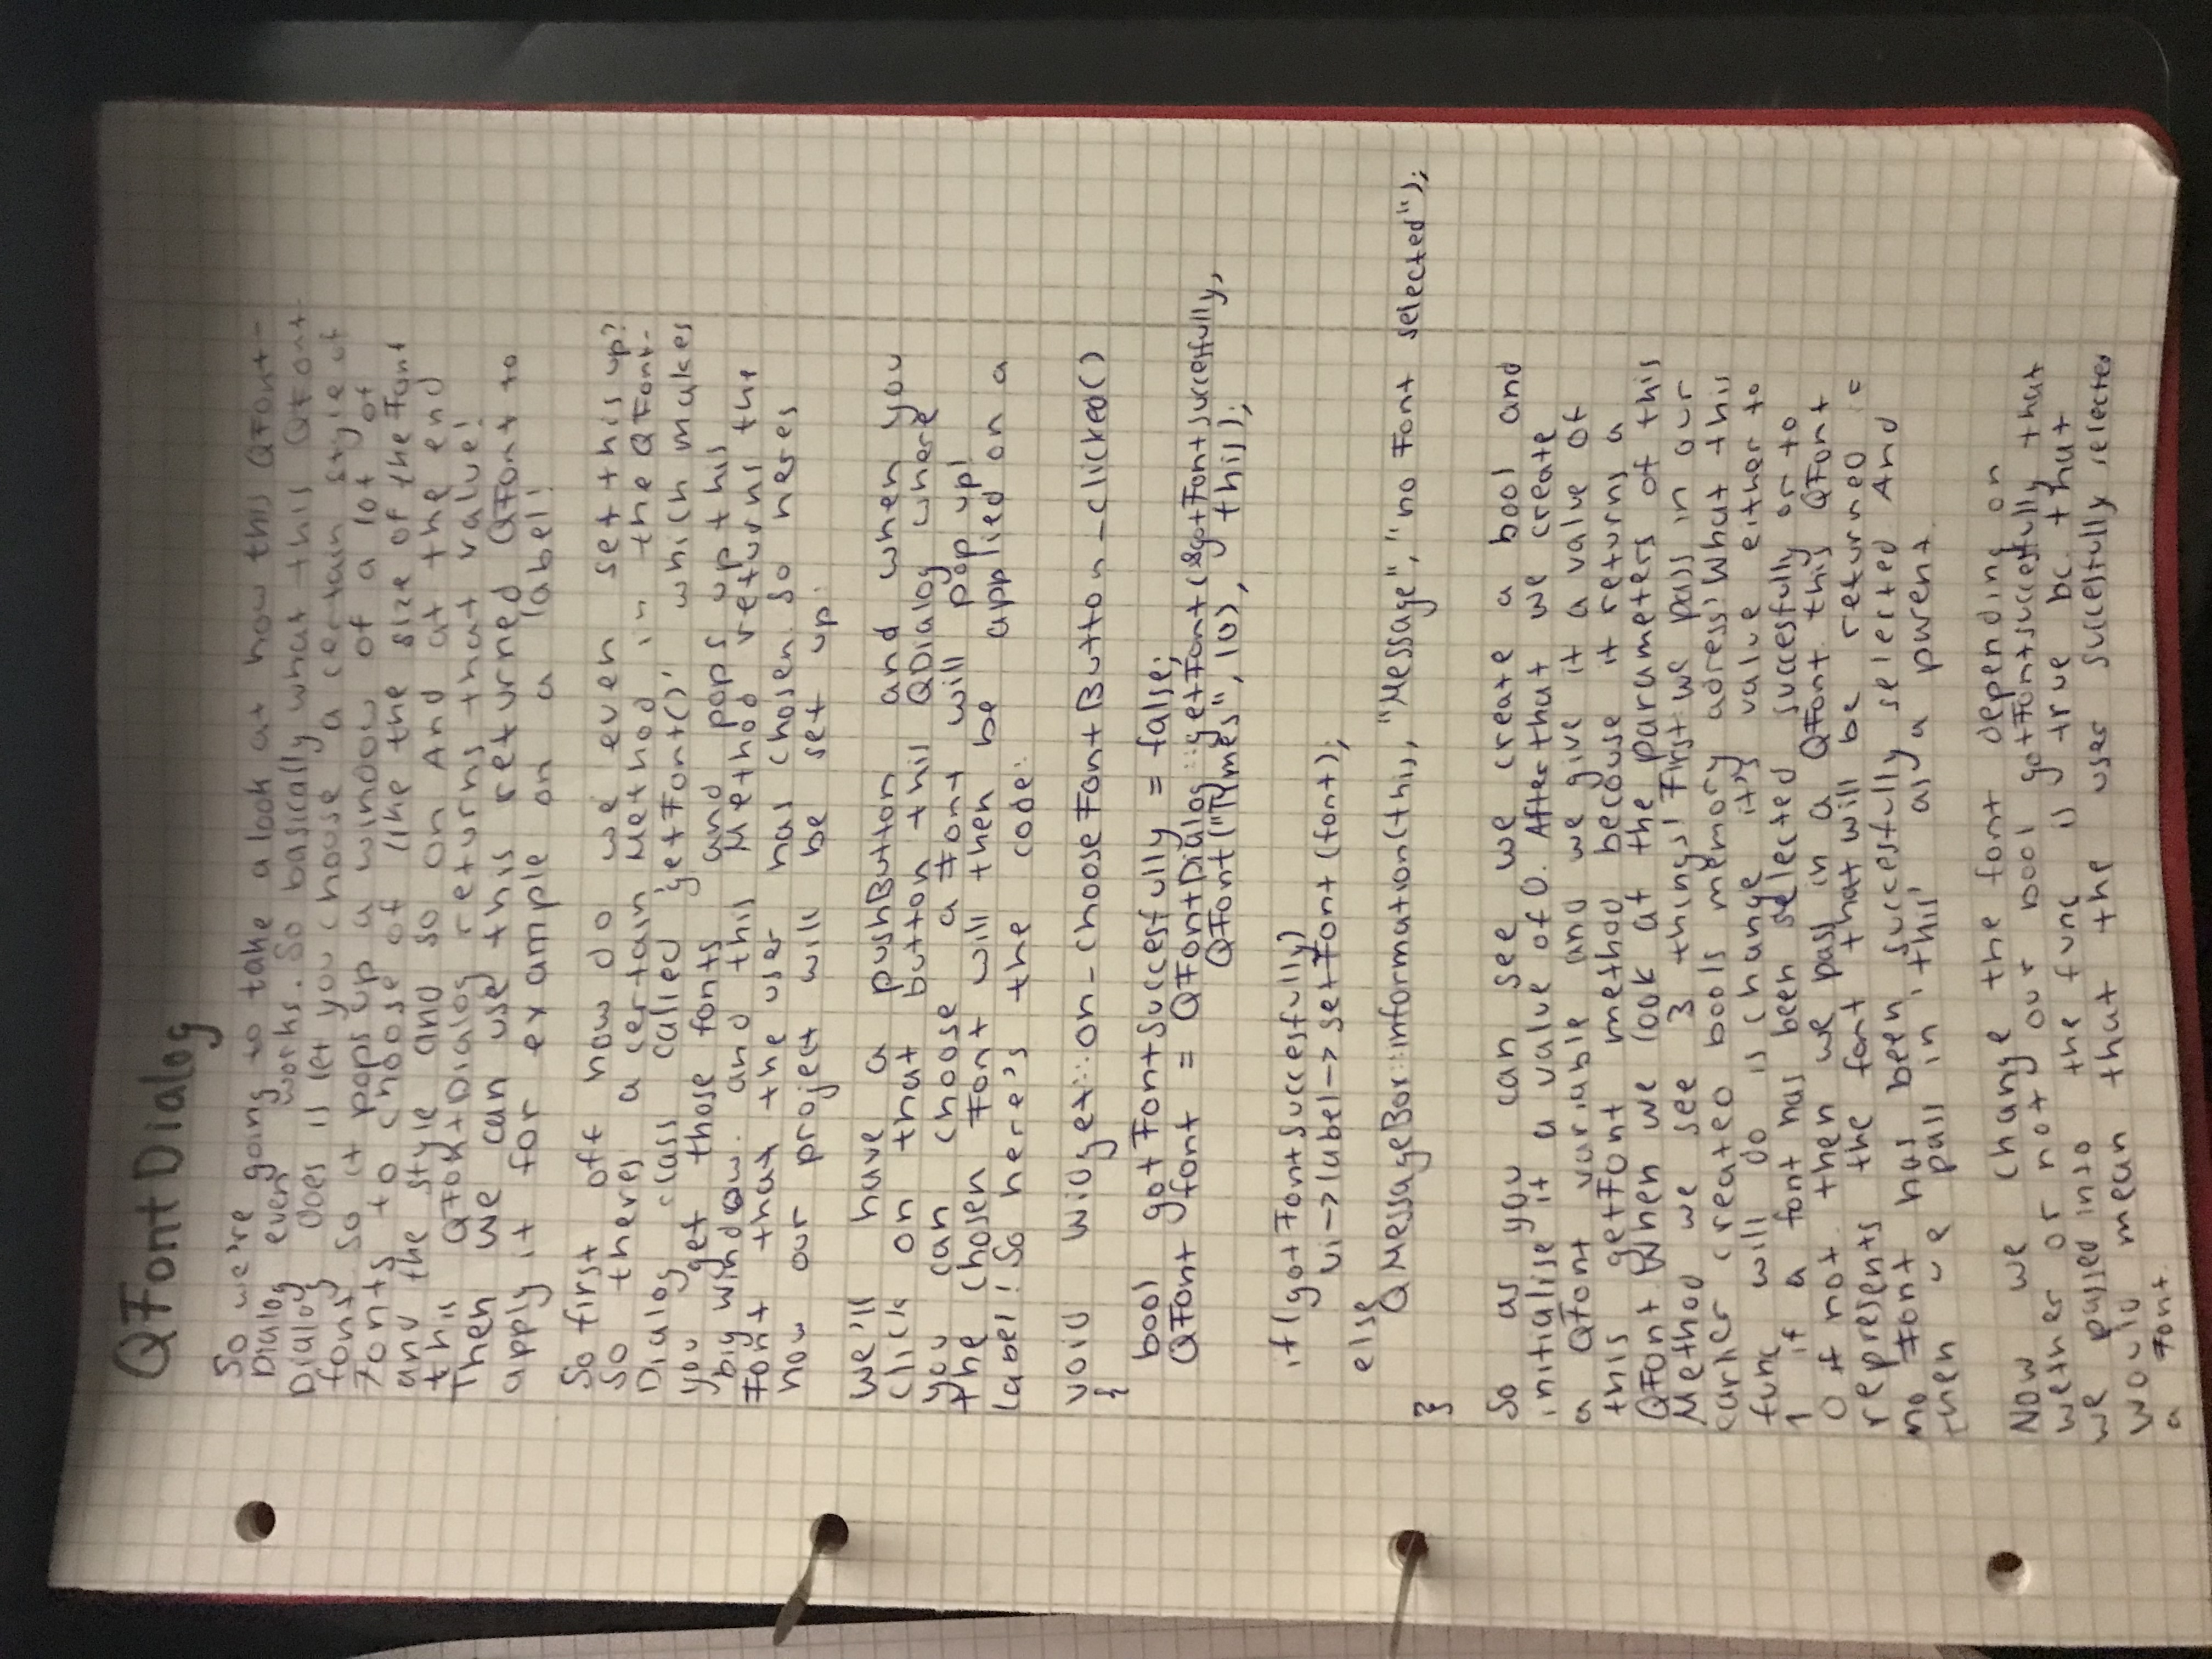 QFontDialog
So we're going to take a look at how this QFont-
Dialog even works. So basically what this QFont-
Dialog does is let you choose a certain style of
font so it pops up a window of a lot of
Fonts to choose of like the size of the Font
and the style and so on And at the end
this QFontDialog returns that value!
Then we can use this returned QFont to
apply it for example on a label!
So first off how do we even set this up?
So theres a certain Method in the QFont-
Dialog class called 'getFont()' which makes
you get those fonts and pops up this
big window. and this Method returns the
Font that the user has chosen. So heres
how our project will be set up:
We'll have a pushButton and when you
click on that button this QDialog where
you can choose a Font will pop up!
The chosen Font will then be applied on a
label! So here's the code:
void Widget::on_chooseFontButton_clicked()
{
bool gotFontSuccesfully = false;
QFont font = QFontDialog::getFont(&gotFontSuccesfully,
QFont("Times", 10), this);
if(gotFontSuccesfully)
ui->label->setFont(font);
else
QMessageBox::information(this, "Message", "no Font selected");
}
So as you can see we create a bool and
initialise it a value of 0. After that we create
a QFont variable and we give it a value of
this getFont method becouse it returns a
QFont. When we look at the parameters of this
Method we see 3 things! First we pass in our
earlier created bools memory adress! What this
func will do is change it's value either to
1 if a font has been selected succesfully or to
0 if not. then we pass in a QFont. this QFont
represents the font that will be returned
no Font has been succesfully selected And
then we pass in 'this' as a parent.
Now we change the font depending on
wether or not our bool gotFontSuccesfully that
we passed into the func is true bc. that
would mean that the user succesfully selected
a Font.